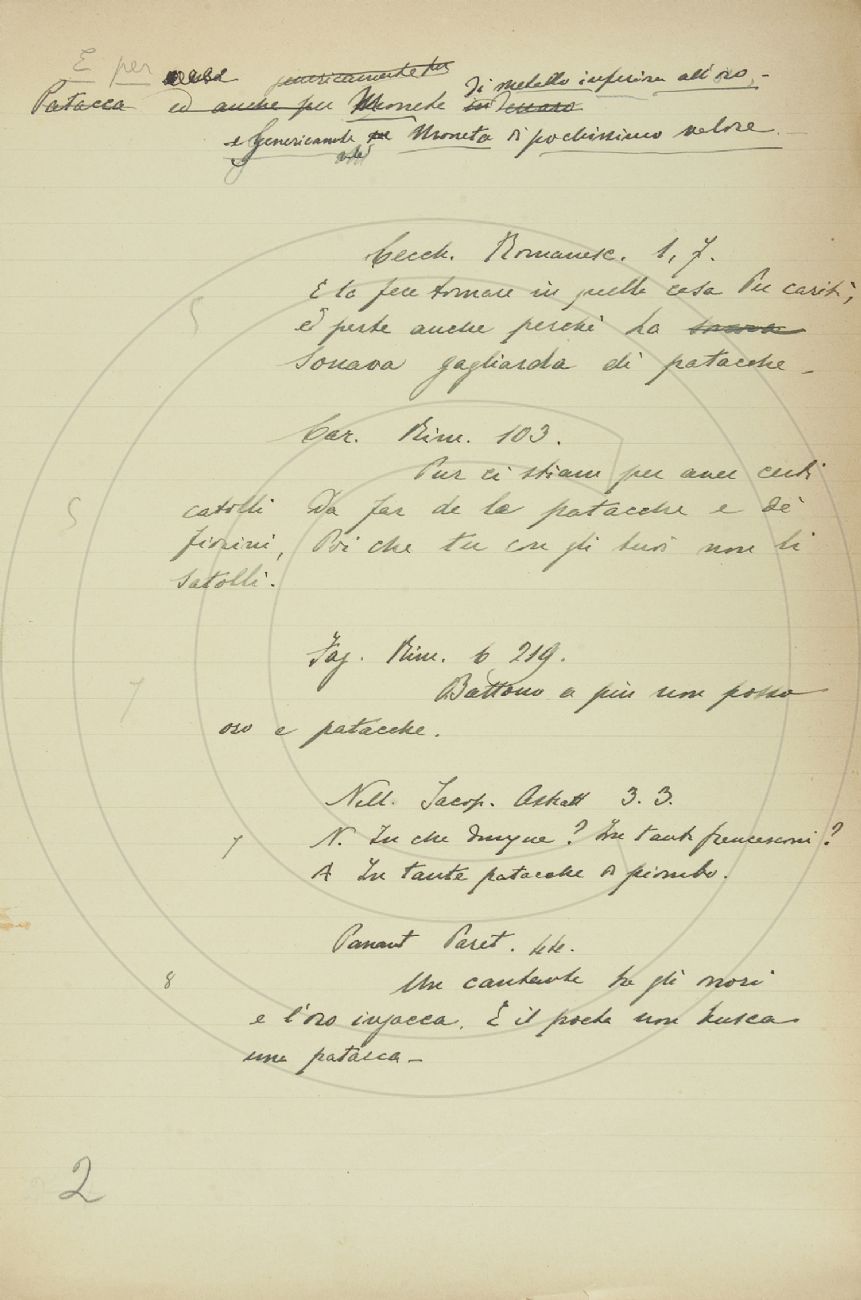 E per
Patacca ed anche per Monete di metallo inferiore all'oro, -
e Genericamente Moneta di pochissimo valore.
Cecch. Romanesc. 1, 7.
E la fece tornare in quella casa Per carità,
e perte anche perchè la
Sonava gagliarda di patacche -
5
Car. Rim. 103.
Pur ci stiam per aver certi
catolli Da far de le patacche e de'
5
fiorini, Poi che tu con gli tuoi non ti
satolli.
Fag. Rim. 6 219.
Battono a più non posso
7
oro e patacche.
Nell. Jacop. Astratt 3. 3.
7 N. In che dunque? In tanti francesconi?
A In tante patacche di piombo.
Panant Paret. 44.
8 Un cantante ha gli onori
e l'oro insacca, E il poeta non busca
una patacca -
2